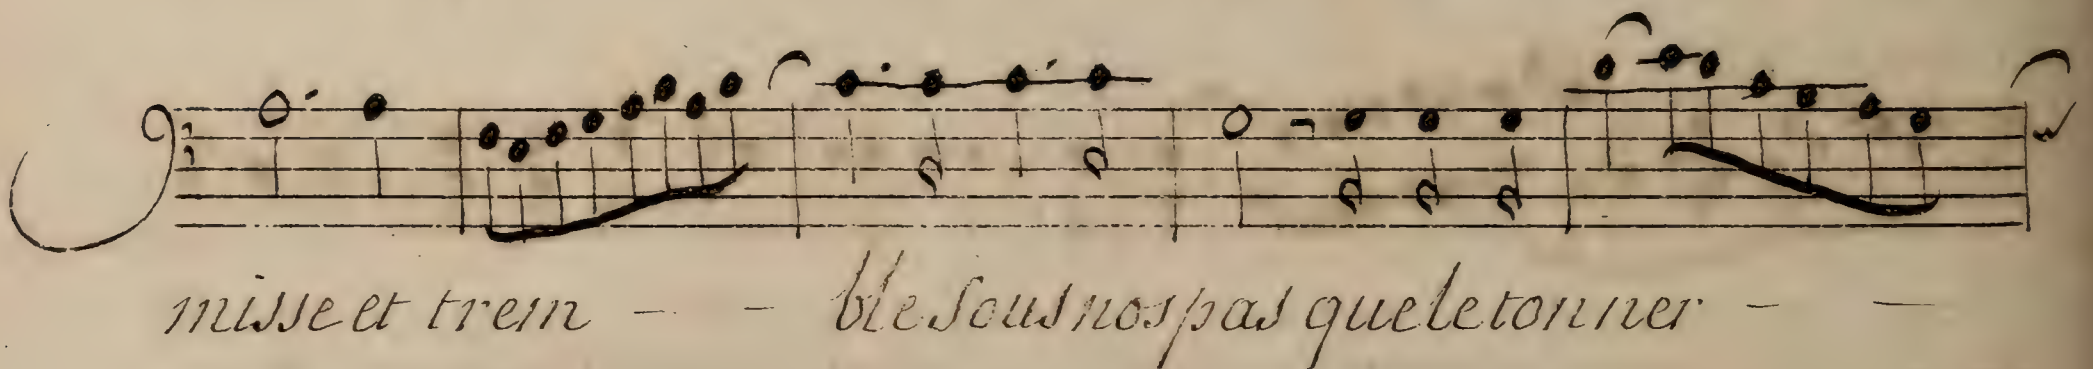 misse et trem - - ble sous nos pas que le tonner - -